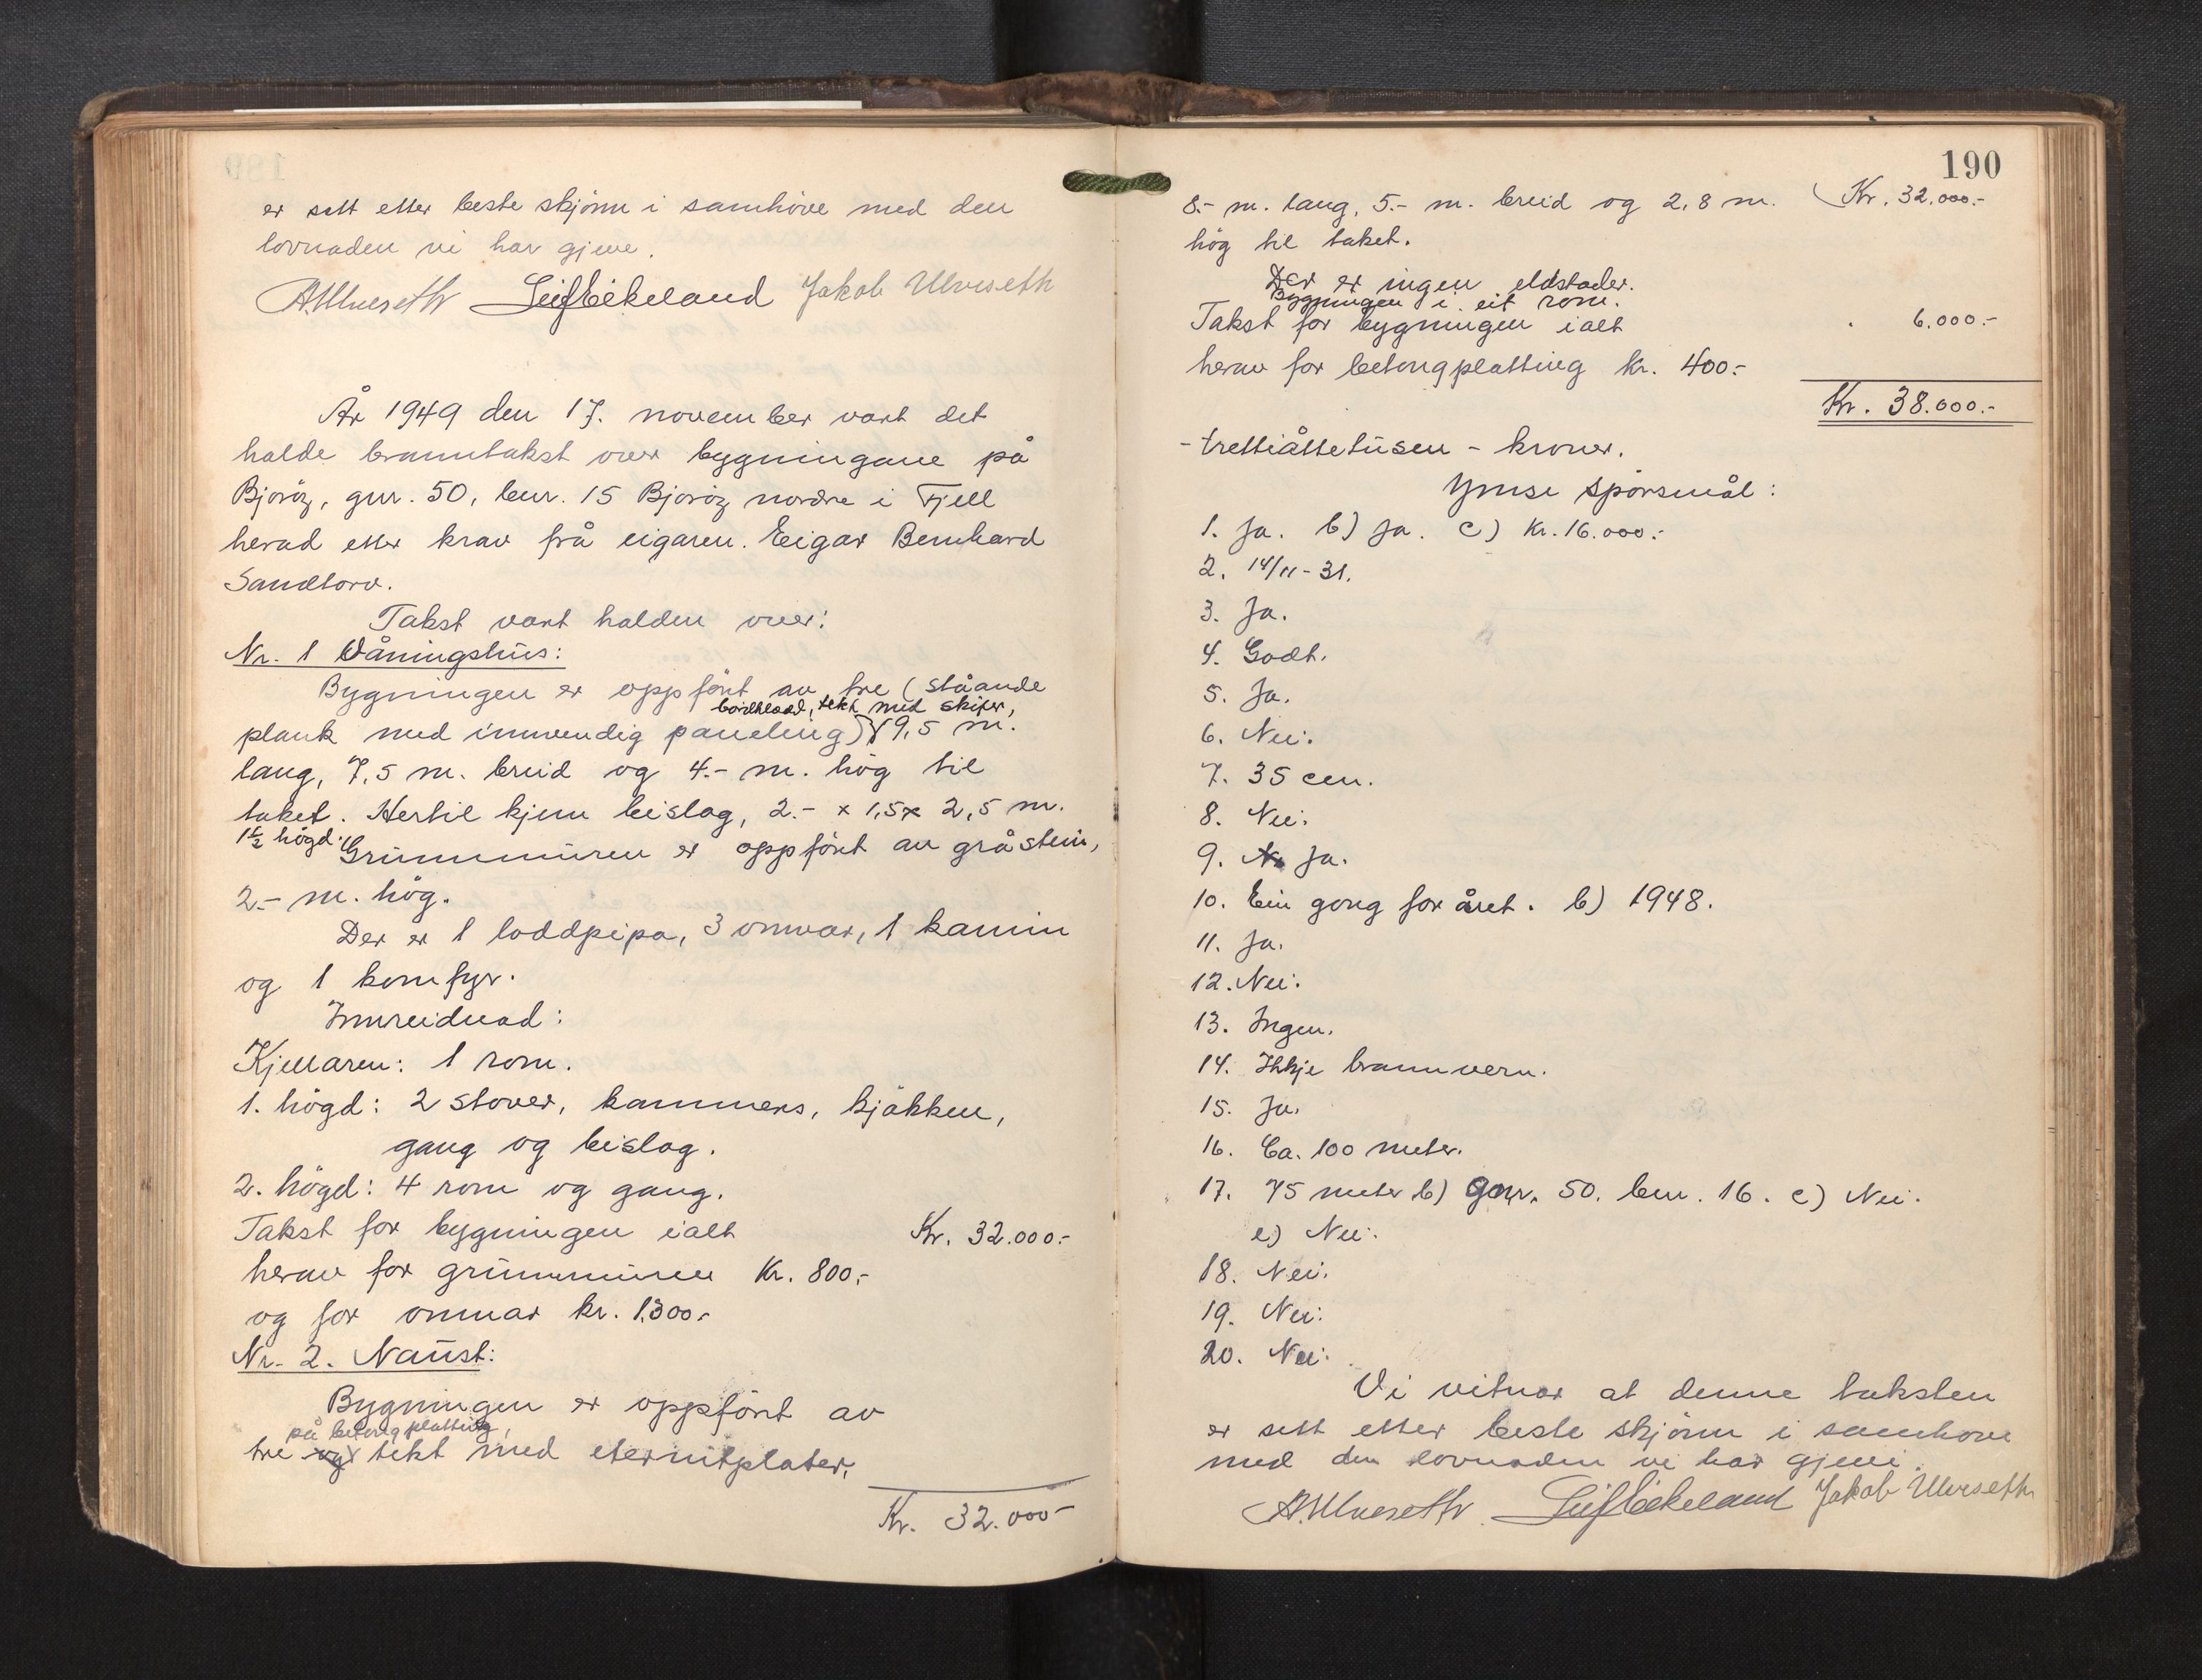 er sett etter beste skjönn i samhöve med den
lovnaden vi har gjeve.
A. Ulveseth Leif Eikeland Jakob Ulveseth
År 1949 den 17. november vart det
halde branntakst over bygningane på
Bjoröy, gnr. 50, bnr. 15 Bjoröy nordre i Fjell
herad etter krav frå eigaren. Eigar Bernhard
Sandtorv.
Takst vart halden over:
Nr. 1 Våningshus:
Bygningen er oppfört av tre (ståande
bordkledd, tekt med skifer,
plank med innvendig paneling) 9,5 m.
lang, 7,5 m. breid og 4.- m. hög til
taket. Hertil kjem beislag, 2.- x 1,5 x 2,5 m.
1½ högd.
Grunnmuren er oppfört av gråstein,
2.- m. hög.
Der er 1 loddpipa, 3 omnar, 1 kamin
og 1 komfyr.
Innreidnad:
Kjellaren: 1 rom.
1. högd: 2 stover, kammers, kjökken,
gang og beislag.
2. högd: 4 rom og gang.
Takst for bygningen ialt Kr. 32.000.-
herav for grunnmuren Kr. 800.-
og for omnar kr. 1.300.-
Nr. 2. Naust:
Bygningen er oppfört av
på betongplatting,
tre og tekt med eternitplater,
Kr. 32.000-
190
8.- m. lang, 5.- m. breid og 2,8 m. Kr. 32.000.-
hög til taket.
Der er ingen eldstader.
Bygningen i eit rom.
Takst for bygningen ialt 6.000.-
herav for betongplatting kr. 400.-
Kr. 38.000.-
- trettiåttetusen - kroner.
Ymse spörsmål:
1. Ja. b) Ja. c) Kr. 16.000.-
2. 14/11-31.
3. Ja.
4. Godt.
5. Ja.
6. Nei.
7. 35 cm.
8. Nei.
9. Ja.
10. Ein gong for året. b) 1948.
11. Ja.
12. Nei.
13. Ingen.
14. Ikkje brannvern.
15. Ja.
16. Ca. 100 meter.
17. 75 meter b) gnr. 50. bnr. 16. c) Nei.
e) Nei.
18. Nei.
19. Nei.
20. Nei.
Vi vitnar at denne taksten
er sett etter beste skjönn i samhöve
med den lovnaden vi har gjeve.
A. Ulveseth Leif Eikeland Jakob Ulveseth